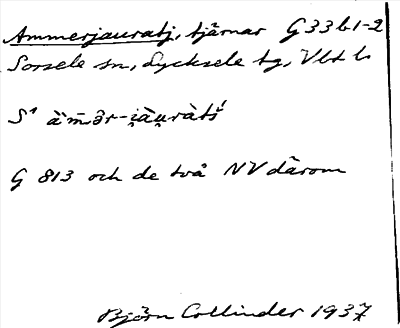 Ammerjauratj, tjärnar G 33 b 1-2
Sorsele sn, Lycksele tg, Vbt l.
S¹
G 813 och de två NV därom
Björn Collinder 1937